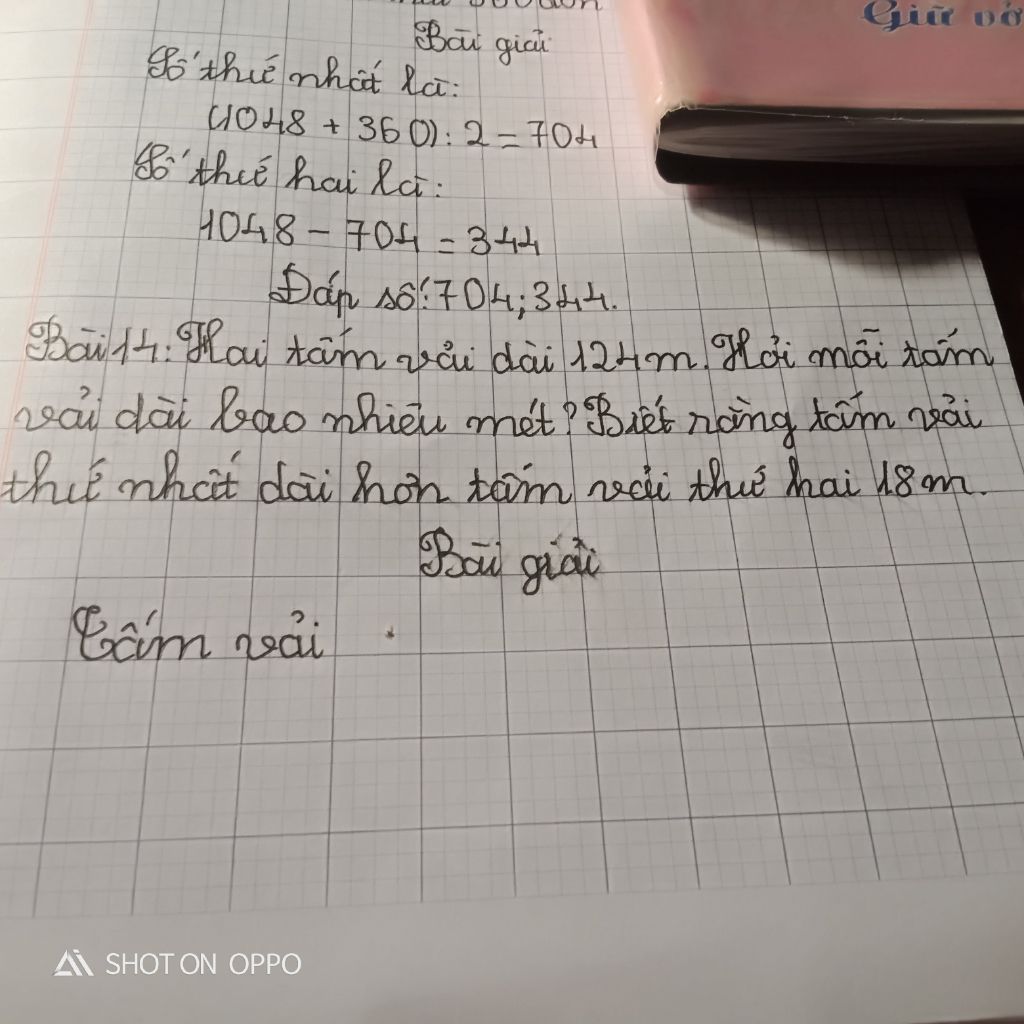 Giữ vở
Bài giải
Số thứ nhất là:
(1048 + 360) : 2 = 704
Số thứ hai là:
1048 - 704 = 344
Đáp số: 704; 344.
Bài 14: Hai tấm vải dài 124m. Hỏi mỗi tấm
vải dài bao nhiêu mét? Biết rằng tấm vải
thứ nhất dài hơn tấm vải thứ hai 18m.
Bài giải
Tấm vải
SHOT ON OPPO